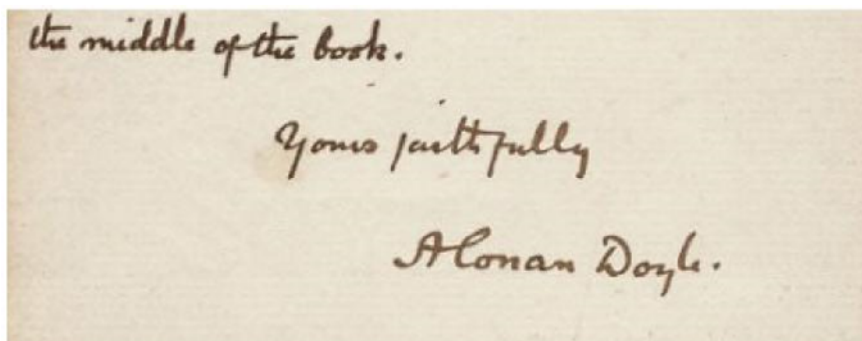 the middle of the book.
Yours faithfully
A Conan Doyle.